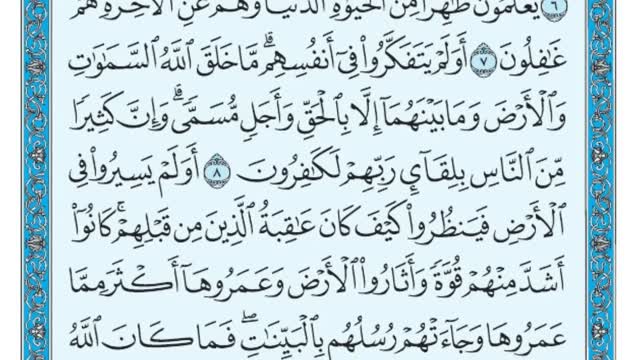 ٦ يَعْلَمُونَ ظَٰهِرًا مِّنَ ٱلْحَيَوٰةِ ٱلدُّنْيَا وَهُمْ عَنِ ٱلْءَاخِرَةِ هُمْ
غَٰفِلُونَ ٧ أَوَلَمْ يَتَفَكَّرُوا۟ فِىٓ أَنفُسِهِم ۗ مَّا خَلَقَ ٱللَّهُ ٱلسَّمَٰوَٰتِ
وَٱلْأَرْضَ وَمَا بَيْنَهُمَآ إِلَّا بِٱلْحَقِّ وَأَجَلٍ مُّسَمًّى ۗ وَإِنَّ كَثِيرًا
مِّنَ ٱلنَّاسِ بِلِقَآئِ رَبِّهِمْ لَكَٰفِرُونَ ٨ أَوَلَمْ يَسِيرُوا۟ فِى
ٱلْأَرْضِ فَيَنظُرُوا۟ كَيْفَ كَانَ عَٰقِبَةُ ٱلَّذِينَ مِن قَبْلِهِمْ ۚ كَانُوٓا۟
أَشَدَّ مِنْهُمْ قُوَّةً وَأَثَارُوا۟ ٱلْأَرْضَ وَعَمَرُوهَآ أَكْثَرَ مِمَّا
عَمَرُوهَا وَجَآءَتْهُمْ رُسُلُهُم بِٱلْبَيِّنَٰتِ ۖ فَمَا كَانَ ٱللَّهُ